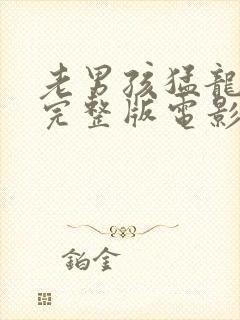 老男孩猛龍
完整版電影
鉑金